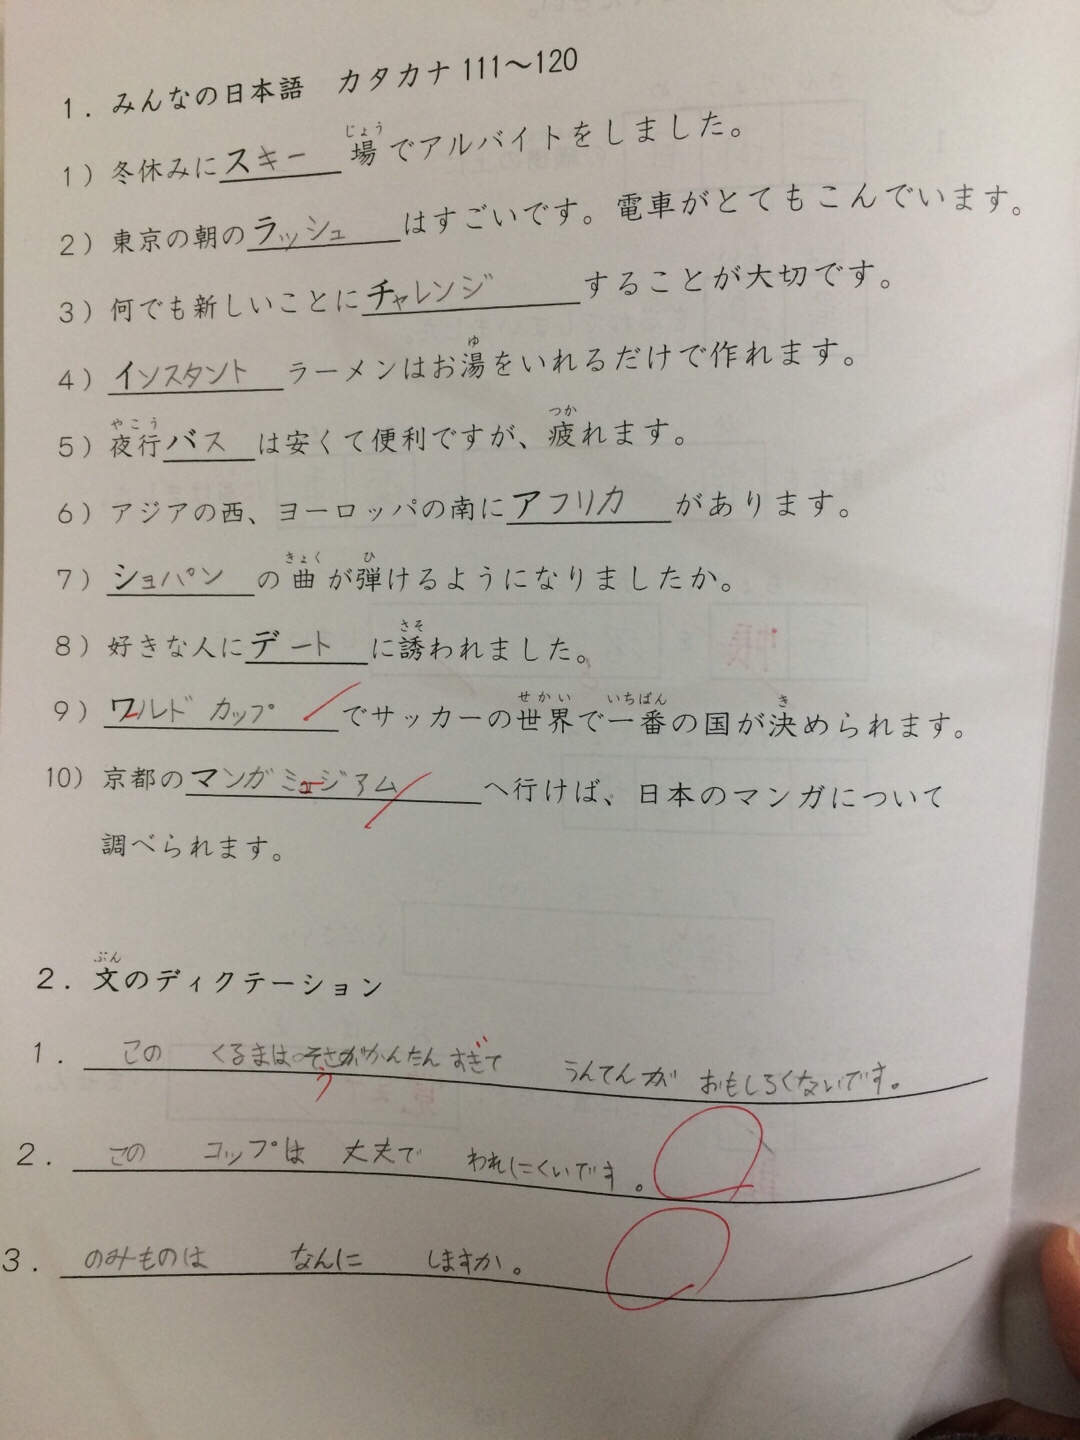 1．みんなの日本語　カタカナ111～120
1）冬休みにスキー場でアルバイトをしました。
じょう
2）東京の朝のラッシュはすごいです。電車がとてもこんでいます。
3）何でも新しいことにチャレンジすることが大切です。
4）インスタントラーメンはお湯をいれるだけで作れます。
ゆ
5）夜行バスは安くて便利ですが、疲れます。
やこう　つか
6）アジアの西、ヨーロッパの南にアフリカがあります。
7）ショパンの曲が弾けるようになりましたか。
きょく　ひ
8）好きな人にデートに誘われました。
さそ
9）ワルドカップでサッカーの世界で一番の国が決められます。
せかい　いちばん　き
10）京都のマンガミュジアムへ行けば、日本のマンガについて
調べられます。
2．文のディクテーション
ぶん
1．このくるまはそさがかんたんすぎてうんてんがおもしろくないです。
う
2．このコップは丈夫でわれにくいです。
3．のみものはなんにしますか。